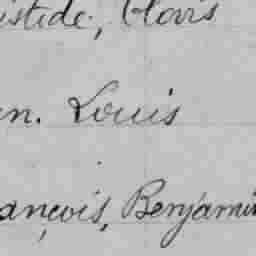 istide, Clovis
en. Louis
ançois, Benjamin